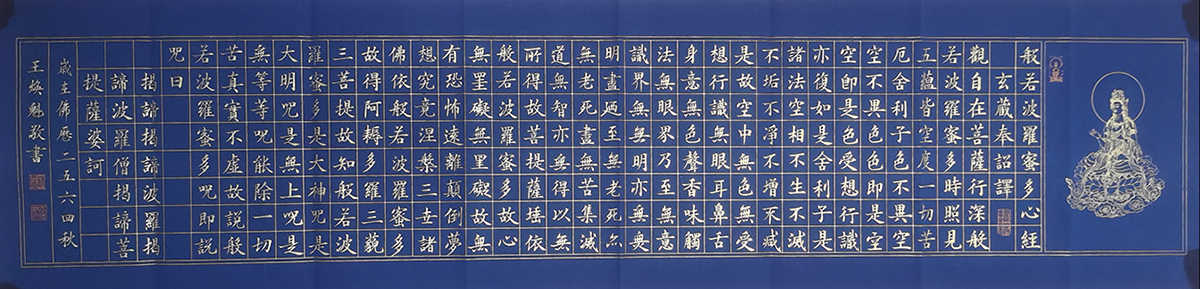 般若波羅蜜多心経
玄蔵奉詔譯
觀自在菩薩行深般
若波羅蜜多時照見
五蘊皆空度一切苦
厄舍利子色不異空
空不異色色即是空
空即是色受想行識
亦復如是舍利子是
諸法空相不生不滅
不垢不淨不增不減
是故空中無色無受
想行識無眼耳鼻舌
身意無色聲香味觸
法無眼界乃至無意
識界無無明亦無無
明盡廼至無老死亦
無老死盡無苦集滅
道無智亦無得以無
所得故菩提薩埵依
般若波羅蜜多故心
無罣礙無罣礙故無
有恐怖遠離顛倒夢
想究竟涅槃三世諸
佛依般若波羅蜜多
故得阿耨多羅三藐
三菩提故知般若波
羅蜜多是大神咒是
大明咒是無上咒是
無等等咒能除一切
苦真實不虛故說般
若波羅蜜多咒即說
咒曰
揭諦揭諦波羅揭
諦波羅僧揭諦菩
提薩婆訶
歲在佛歷二五六四秋
王魁敬書